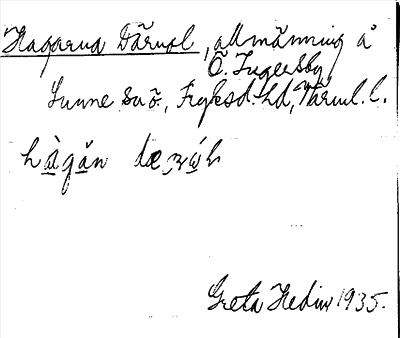 Hagarna Därnol, allmänning å
Ö. Ingersby
Sunne sn ö., Fryksd. hd, Värml. l.
Greta Hedin 1935.